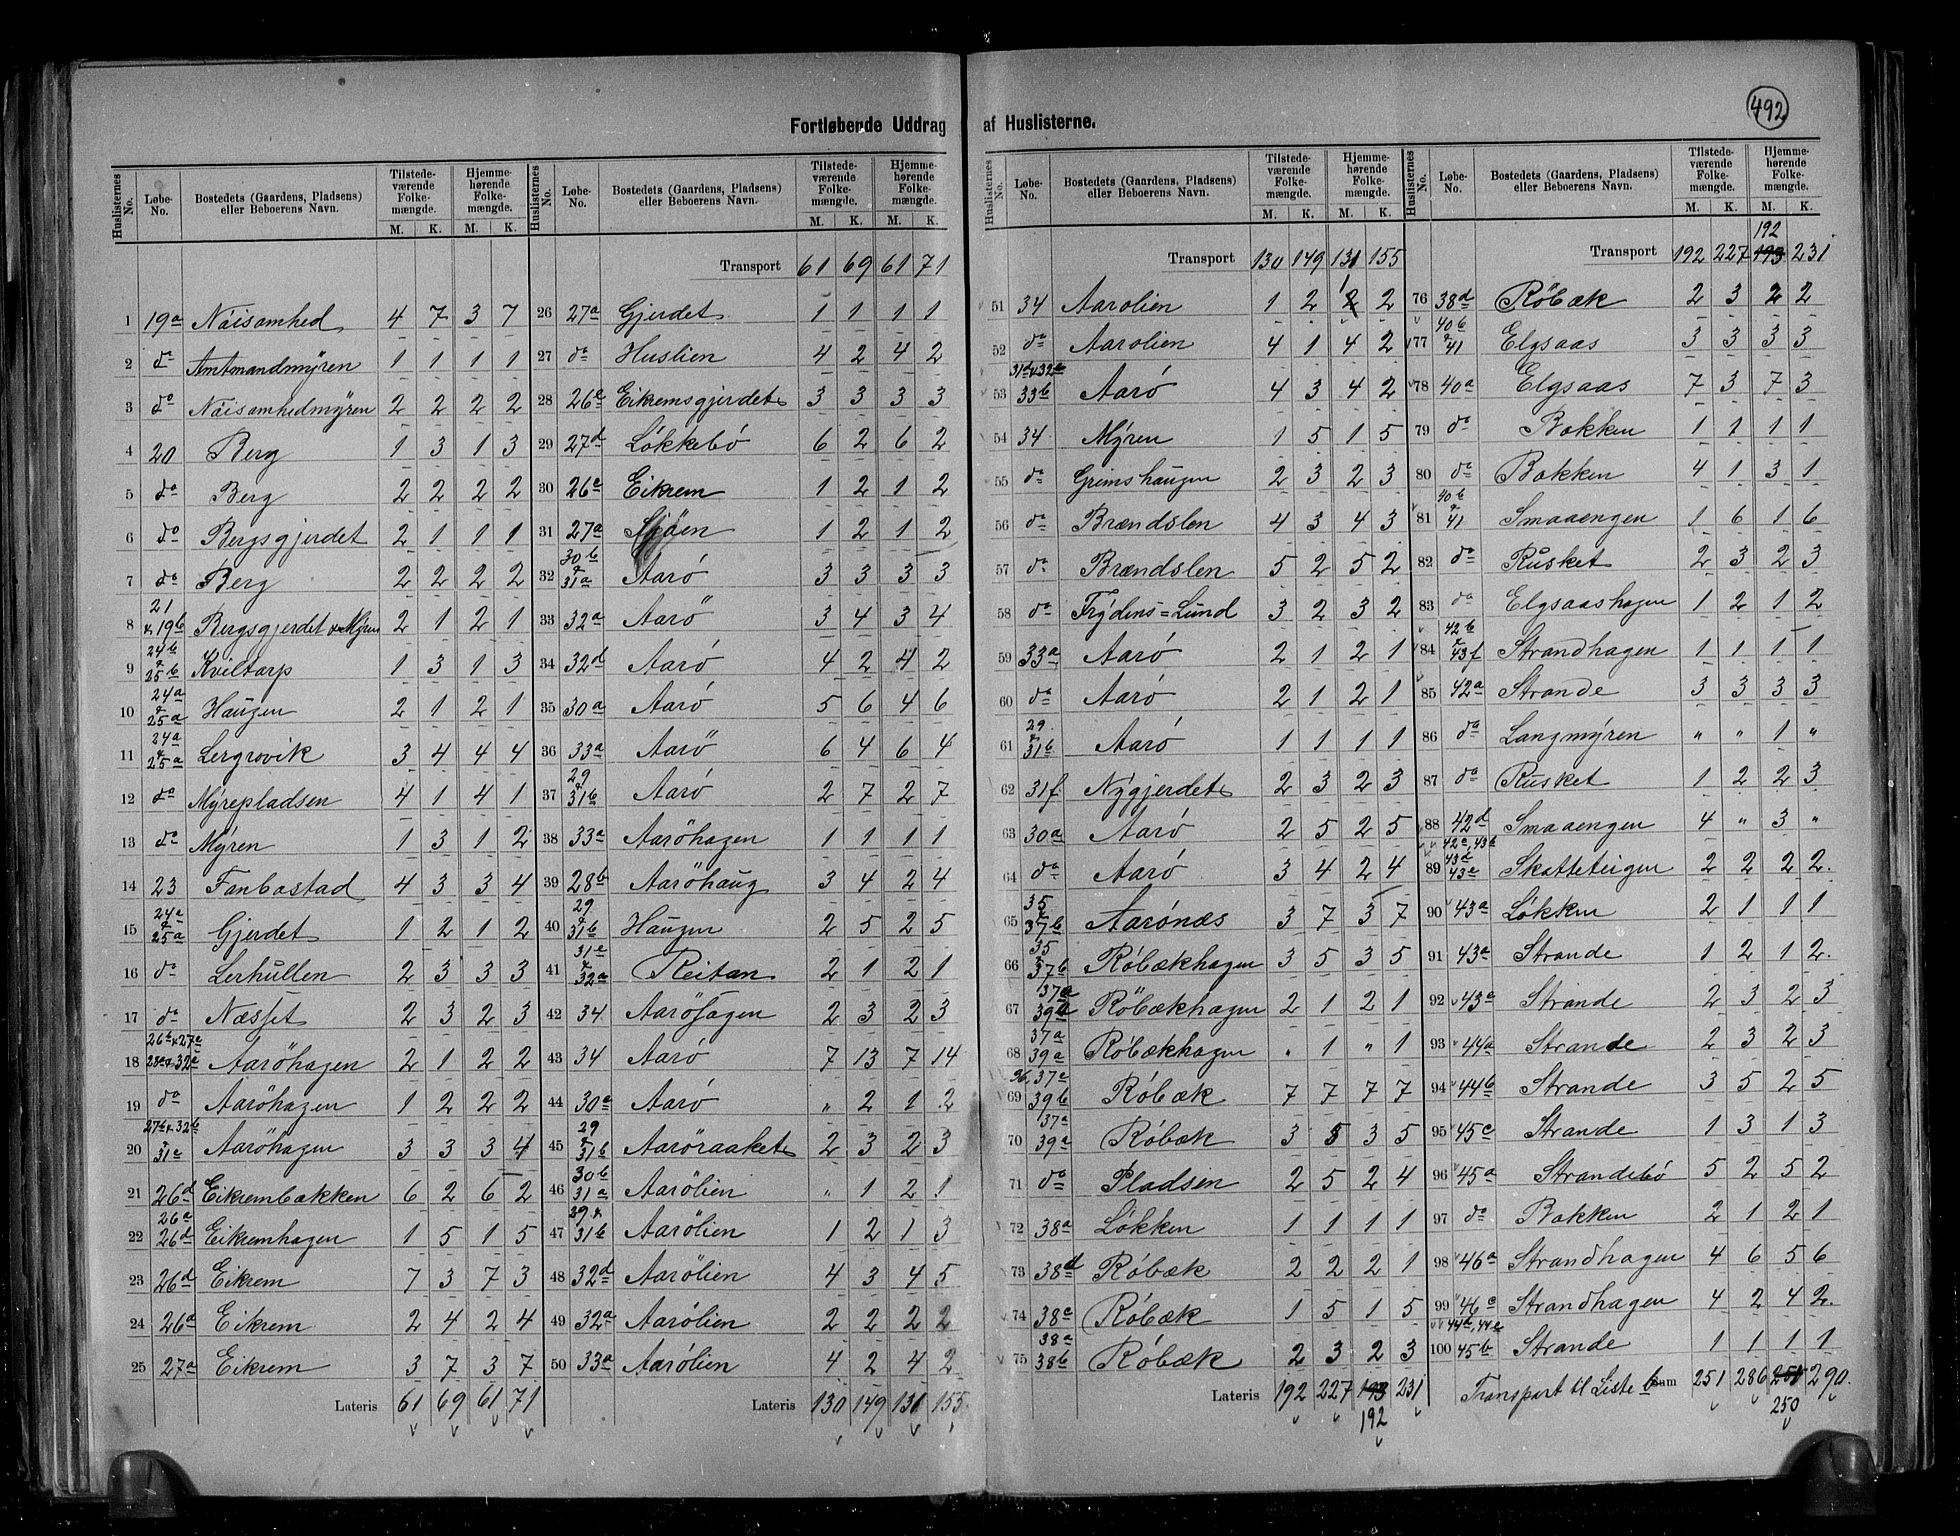 492
Fortløbende Uddrag af Huslisterne.
Huslisternes No. Løbe-No. Bostedets (Gaardens, Pladsens) eller Beboerens Navn. Tilstedeværende Folkemængde. M. K. Hjemmehørende Folkemængde. M. K.
1 19a Nöisomhed 4 7 3 7
2 do Amtmandmÿren 1 1 1 1
3 do Nöisomhedmÿren 2 2 2 2
4 20 Berg 1 3 1 3
5 do Berg 2 2 2 2
6 do Bergsgjerdet 2 1 1 1
7 do Berg 2 2 2 2
8 21 & 19b Bergsgjerdet & Mÿren 2 1 2 1
9 24b & 25b Kviltorp 1 3 1 3
10 24a & 25a Haugen 2 1 2 1
11 24a & 25a Lergrovik 3 4 4 4
12 do Mÿrepladsen 4 1 4 1
13 do Mÿren 1 3 1 2
14 23 Fanbostad 4 3 3 4
15 24a & 25a Gjerdet 1 2 1 2
16 do Lerhullen 2 3 3 3
17 do Næsset 2 3 2 3
18 26a & 27a 28a & 32a Aaröhagen 2 1 2 2
19 do Aaröhagen 1 2 2 2
20 27b & 32b & 31c Aaröhagen 3 3 3 4
21 26d Eikrembakken 6 2 6 2
22 26a 26d Eikremhagen 1 5 1 5
23 26d Eikrem 7 3 7 3
24 26a Eikrem 2 4 2 4
25 27a Eikrem 3 7 3 7
Lateris 61 69 61 71
Huslisternes No. Løbe-No. Bostedets (Gaardens, Pladsens) eller Beboerens Navn. Tilstedeværende Folkemængde. M. K. Hjemmehørende Folkemængde. M. K.
Transport 61 69 61 71
26 27a Gjerdet 1 1 1 1
27 do Huslien 4 2 4 2
28 26e Eikremsgjerdet 3 3 3 3
29 27d Løkkebö 6 2 6 2
30 26e Eikrem 1 2 1 2
31 27a Sjöen 1 2 1 2
32 30b & 31a Aarö 3 3 3 3
33 32a Aarö 3 4 3 4
34 32d Aarö 4 2 4 2
35 30a Aarö 5 6 4 6
36 33a Aarö 6 4 6 4
37 29 & 31b Aarö 2 7 2 7
38 33a Aaröhagen 1 1 1 1
39 28b Aaröhaug 3 4 2 4
40 29 & 31b Haugen 2 5 2 5
41 31e & 32a Reitan 2 1 2 1
42 34 Aaröhagen 2 3 2 3
43 34 Aarö 7 13 7 14
44 30a Aarö " 2 1 2
45 29 & 31b Aaröraaket 2 3 2 3
46 30b 31a Aarölien " 1 2 1
47 29 & 31b Aarölien 1 2 1 3
48 32d Aarölien 4 3 4 5
49 32a Aarölien 2 2 2 2
50 33a Aarölien 4 2 4 2
Lateris 130 149 131 155
Huslisternes No. Løbe-No. Bostedets (Gaardens, Pladsens) eller Beboerens Navn. Tilstedeværende Folkemængde. M. K. Hjemmehørende Folkemængde. M. K.
Transport 130 149 131 155
51 34 Aarolien 1 2 1 2
52 do Aarolien 4 1 4 2
53 31a & 32e 33b Aarö 4 3 4 2
54 34 Mÿren 1 5 1 5
55 do Grimshaugen 2 3 2 3
56 do Brændslen 4 3 4 3
57 do Brændslen 5 2 5 2
58 do Frÿdens=Lund 3 2 3 2
59 33a Aarö 2 1 2 1
60 do Aarö 2 1 2 1
61 29 & 31b Aarö 1 1 1 1
62 31f Nygjerdet 2 3 2 3
63 30a Aarö 2 5 2 5
64 do Aarö 3 4 2 4
65 35 & 37b Aarönæs 3 7 3 7
66 35 & 37b Röbækhagen 3 5 3 5
67 37a 39a Röbækhagen 2 1 2 1
68 37a 39a Röbækhagen " 1 " 1
69 36, 37c 39b Röbæk 7 7 7 7
70 37a 39a Röbæk 3 5 3 5
71 do Pladsen 2 5 2 4
72 38a Løkken 1 1 1 1
73 38d Röbæk 2 2 2 1
74 38c Röbæk 1 5 1 5
75 38a 38b Röbæk 2 3 2 3
Lateris 192 227 193 231
192
Huslisternes No. Løbe-No. Bostedets (Gaardens, Pladsens) eller Beboerens Navn. Tilstedeværende Folkemængde. M. K. Hjemmehørende Folkemængde. M. K.
192
Transport 192 227 193 231
76 38d Röbæk 2 3 2 2
77 40b & 41 Elgsaas 3 3 3 3
78 40a Elgsaas 7 3 7 3
79 do Bakken 1 1 1 1
80 do Bakken 4 1 3 1
81 40b & 41 Smaaengen 1 6 1 6
82 do Rusket 2 3 2 3
83 do Elgsaashagen 1 2 1 2
84 42b & 43f Strandhagen 1 1 1 1
85 42a Strande 3 3 3 3
86 do Langmÿren " " 1 "
87 do Rusket 1 2 2 3
88 42d Smaaengen 4 " 3 "
89 42c, 43b 43d 43e Skatteteigen 2 2 2 2.
90 43a Løkken 2 1 1 1
91 43a Strande 1 2 1 2.
92 43a Strande 2 3 2 3
93 44a Strande 2 3 2 3
94 44b Strande 3 5 2 5
95 45c Strande 1 3 1 3
96 45a Strandebö 5 2 5 2
97 do Bakken 2 1 2 1
98 46a Strandhagen 4 6 5 6
99 46c Strandhagen 4 2 4 2.
100 44d, 44e 45b Strande 1 1 1 1
Transport til Liste 6 Sum 251 286 251 290.
250